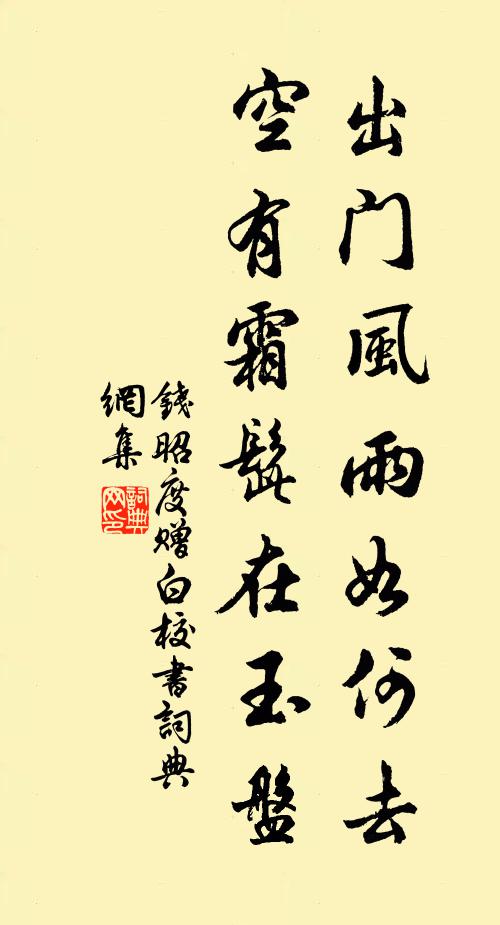 出门風雨如何去
空有霜髭在玉盤
錢昭度贈白校書詞典
網集
詞典
网印